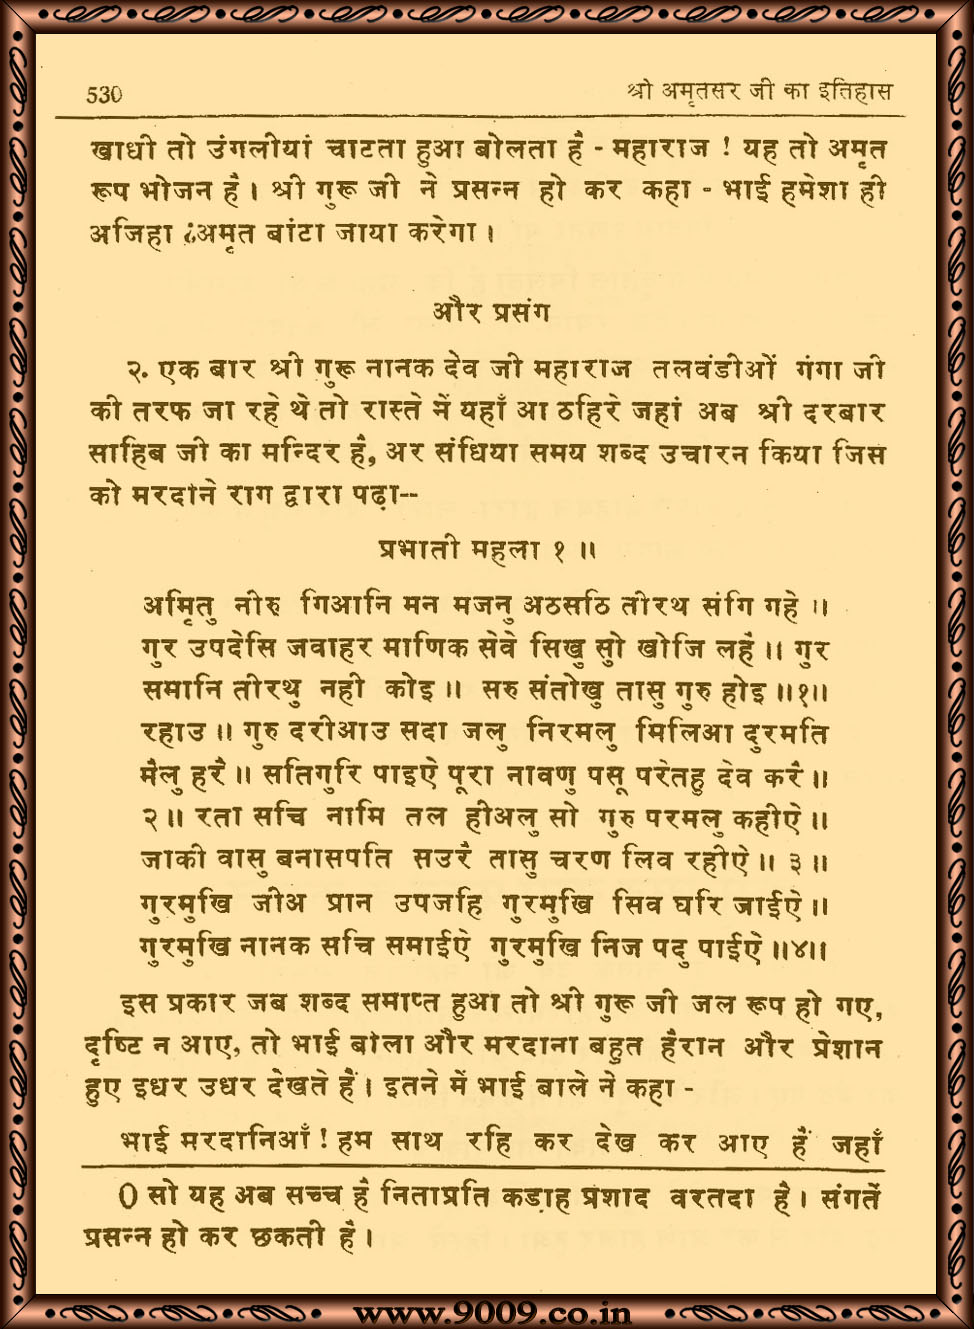 530
श्री अमृतसर जी का इतिहास
खाधी तो उंगलीयां चाटता हुआ बोलता है - महाराज ! यह तो अमृत
रूप भोजन है । श्री गुरू जी ने प्रसन्न हो कर कहा - भाई हमेशा ही
अजिहा अमृत बांटा जाया करेगा ।
और प्रसंग
२. एक बार श्री गुरू नानक देव जी महाराज तलवंडीओं गंगा जी
की तरफ जा रहे थे तो रास्ते में यहाँ आ ठहिरे जहां अब श्री दरबार
साहिब जी का मन्दिर है, अर संधिया समय शब्द उच्चारन किया जिस
को मरदाने राग द्वारा पढ़ा--
प्रभाती महला १ ॥
अमृितु नीरु गिआनि मन मजनु अठसठि तीरथ संगि गहे ॥
गुर उपदेसि जवाहर माणिक सेवे सिखु सुो खोजि लहै ॥ गुर
समानि तीरथु नही कोइ ॥ सरु संतोखु तासु गुरु होइ ॥१॥
रहाउ ॥ गुरु दरीआउ सदा जलु निरमलु मिलिआ दुरमति
मैलु हरै ॥ सतिगुरि पाइऐ पूरा नावणु पसू परेतहु देव करै ॥
२॥ रता सचि नामि तल हीअलु सो गुरु परमलु कहीऐ ॥
जाकी वासु बनासपति सउरै तासु चरण लिव रहीऐ ॥ ३ ॥
गुरमुखि जीअ प्रान उपजहि गुरमुखि सिव घरि जाईऐ ॥
गुरमुखि नानक सचि समाईऐ गुरमुखि निज पदु पाईऐ ॥४॥
इस प्रकार जब शब्द समाप्त हुआ तो श्री गुरू जी जल रूप हो गए,
दृष्टि न आए, तो भाई बाला और मरदाना बहुत हैरान और प्रेशान
हुए इधर उधर देखते हैं । इतने में भाई बाले ने कहा -
भाई मरदानिआँ ! हम साथ रहि कर देख कर आए हैं जहाँ
0 सो यह अब सच्च है निताप्रति कड़ाह प्रशाद वरतदा है । संगतें
प्रसन्न हो कर छकती है ।
www.9009.co.in